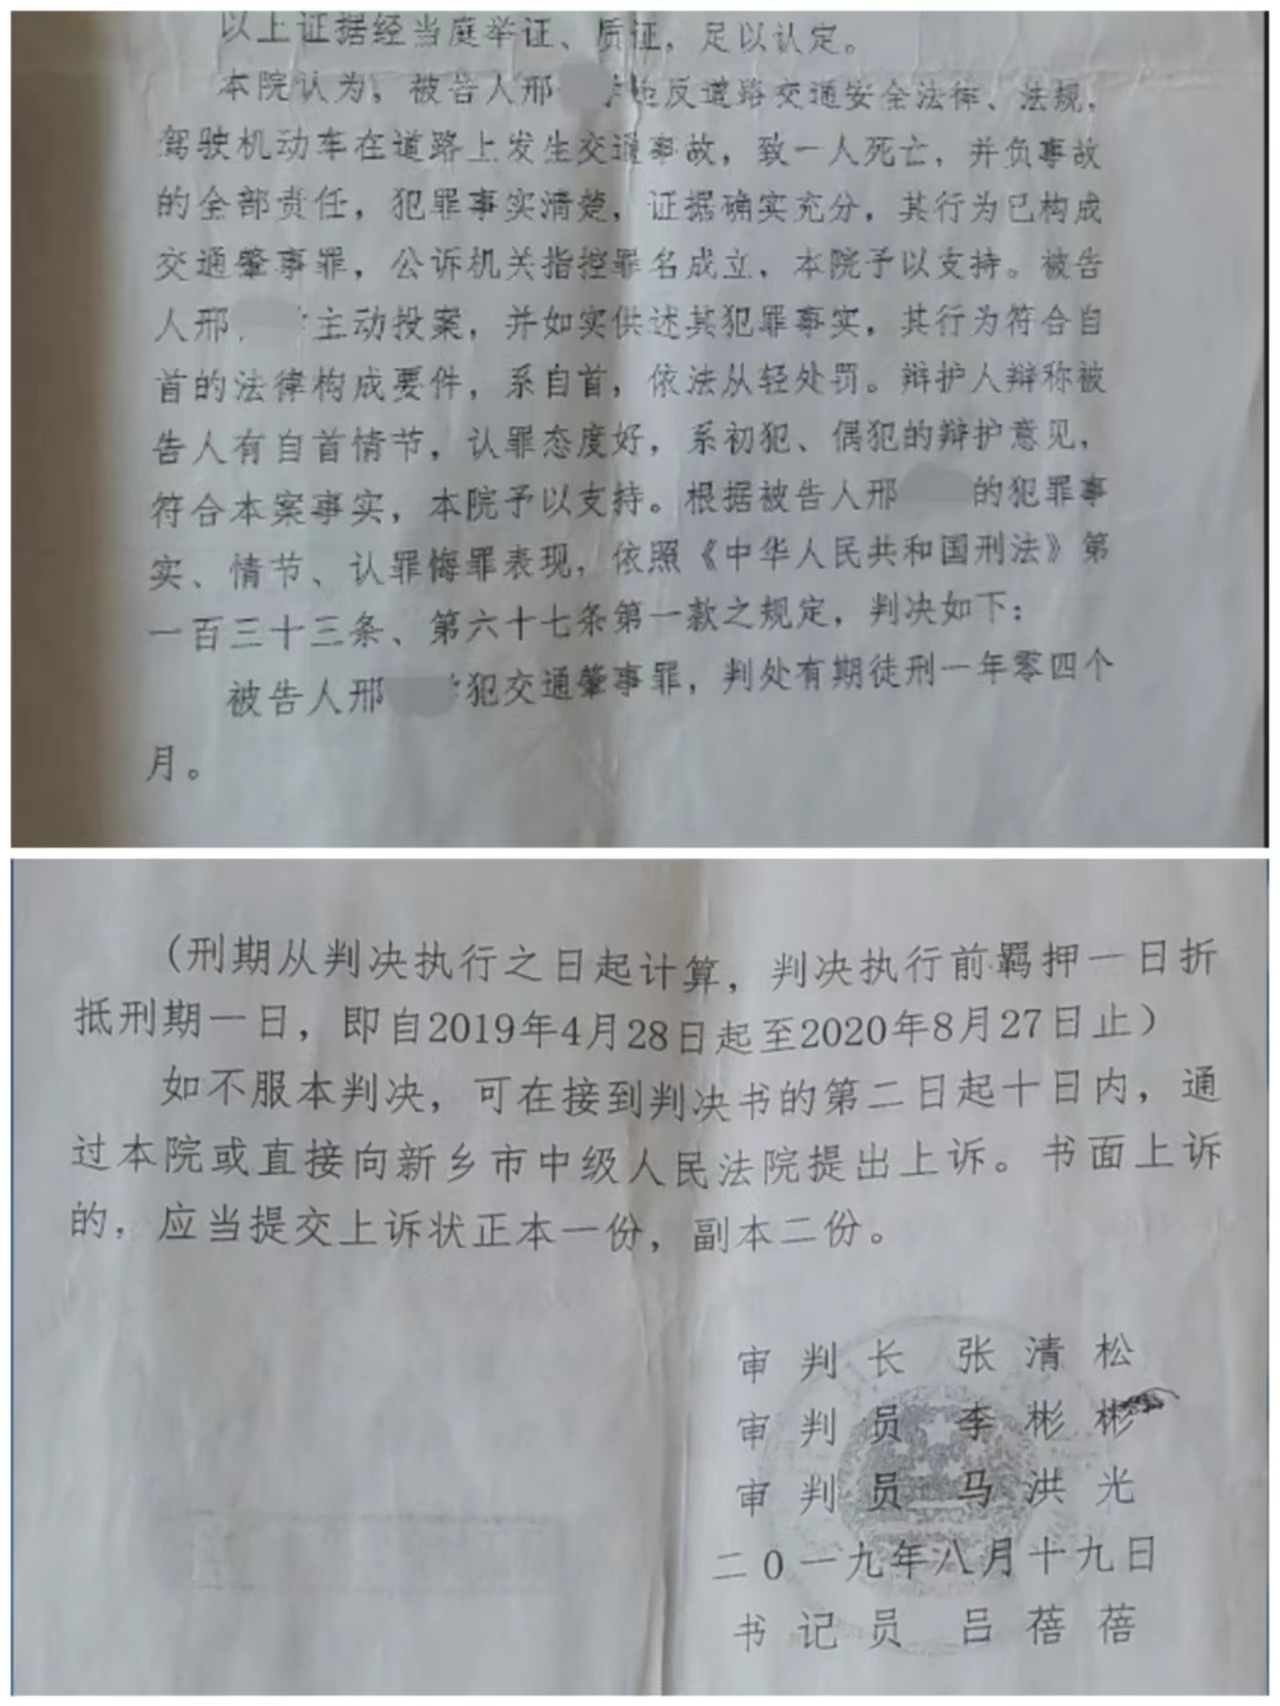 以上证据经当庭举证、质证，足以认定。
本院认为，被告人邢 违反道路交通安全法律、法规，
驾驶机动车在道路上发生交通事故，致一人死亡，并负事故
的全部责任，犯罪事实清楚，证据确实充分，其行为已构成
交通肇事罪，公诉机关指控罪名成立，本院予以支持。被告
人邢 主动投案，并如实供述其犯罪事实，其行为符合自
首的法律构成要件，系自首，依法从轻处罚。辩护人辩称被
告人有自首情节，认罪态度好，系初犯、偶犯的辩护意见，
符合本案事实，本院予以支持。根据被告人邢 的犯罪事
实、情节、认罪悔罪表现，依照《中华人民共和国刑法》第
一百三十三条、第六十七条第一款之规定，判决如下：
被告人邢 犯交通肇事罪，判处有期徒刑一年零四个
月。
（刑期从判决执行之日起计算，判决执行前羁押一日折
抵刑期一日，即自2019年4月28日起至2020年8月27日止）
如不服本判决，可在接到判决书的第二日起十日内，通
过本院或直接向新乡市中级人民法院提出上诉。书面上诉
的，应当提交上诉状正本一份，副本二份。
审 判 长 张 清 松
审 判 员 李 彬 彬
审 判 员 马 洪 光
二0一九年八月十九日
书 记 员 吕 蓓 蓓